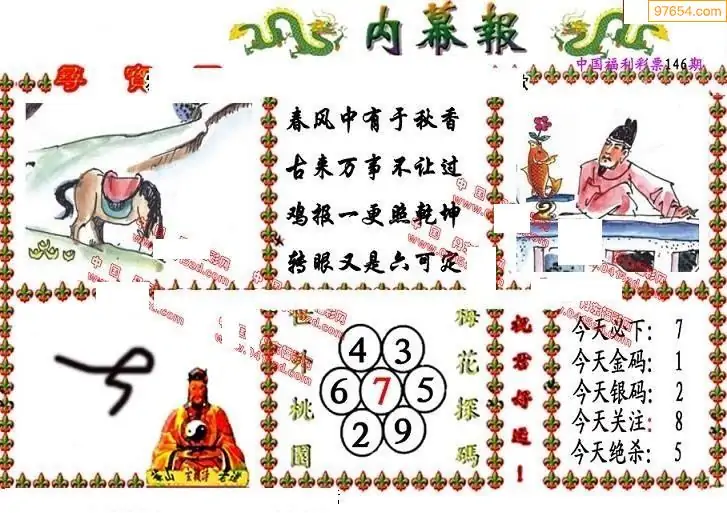 97654.com
内幕報
中国福利彩票146期
春风中有于秋香
古来万事不让过
鸡报一更照乾坤
转眼又是六可定
2
世外桃園
4 3
6 7 5
2 9
梅花探碼
祝君好运!
今天必下: 7
今天金码: 1
今天银码: 2
今天关注: 8
今天绝杀: 5